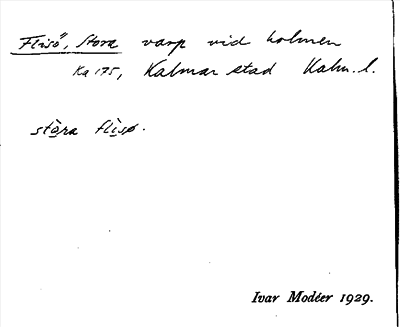 Flisö, Stora varp vid holmen
Ka 175, Kalmar stad Kalm. l.
stòra flìsø.
Ivar Modéer 1929.